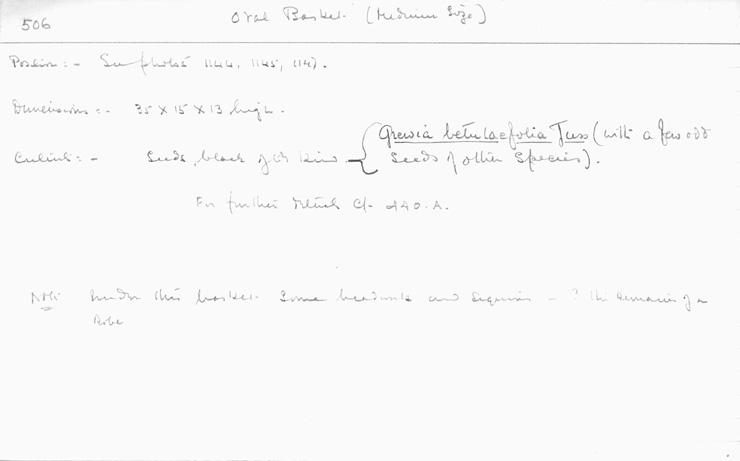 506
Oval Basket. (Medium Size)
Position :- See photos 1144, 1145, 1147.
Dimensions :- 35 x 15 x 13 high.
Contents :- Seeds, black of one kind { Grewia betulaefolia Juss (with a few odd
seeds of other species).
For further details Cf. 440.A.
Note under this basket some beadwork and sequins - ? the remains of a
Robe